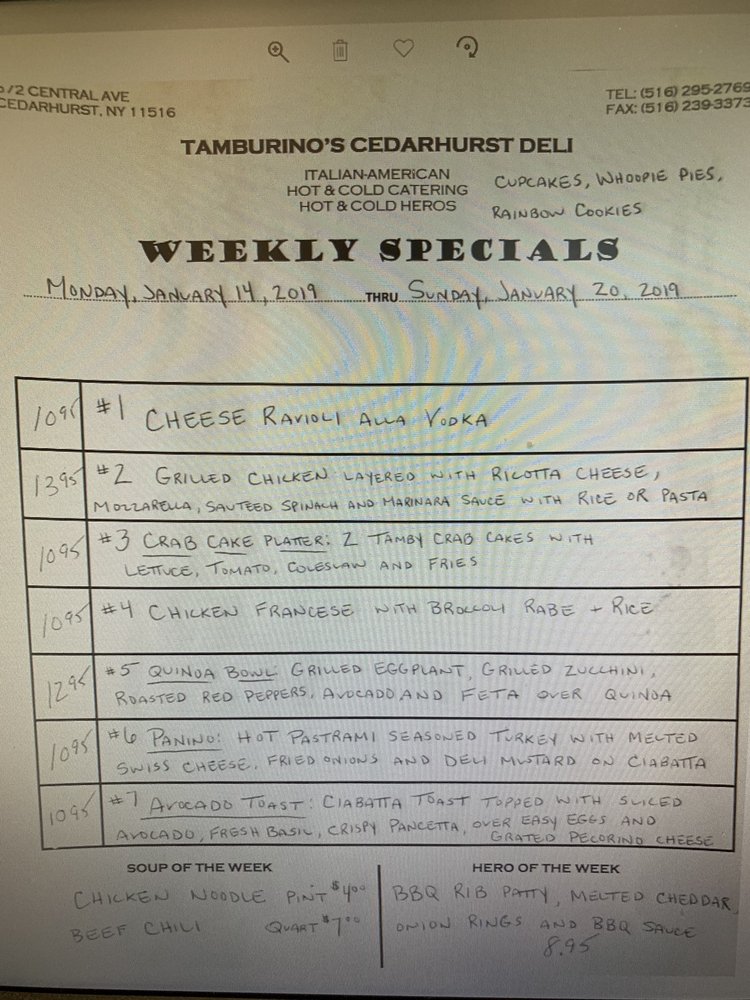 CENTRAL AVE
CEDARHURST, NY 11516
TEL: (516) 295-2769
FAX: (516) 239-3373
TAMBURINO'S CEDARHURST DELI
ITALIAN-AMERICAN
HOT & COLD CATERING
HOT & COLD HEROS
CUPCAKES, WHOOPIE PIES,
RAINBOW COOKIES
WEEKLY SPECIALS
MONDAY, JANUARY 14, 2019 THRU SUNDAY, JANUARY 20, 2019
1095 #1 CHEESE RAVIOLI ALLA VODKA
1395 #2 GRILLED CHICKEN LAYERED WITH RICOTTA CHEESE,
MOZZARELLA, SAUTEED SPINACH AND MARINARA SAUCE WITH RICE OR PASTA
1095 #3 CRAB CAKE PLATTER: 2 TAMBY CRAB CAKES WITH
LETTUCE, TOMATO, COLESLAW AND FRIES
1095 #4 CHICKEN FRANCESE WITH BROCCOLI RABE + RICE
1295 #5 QUINOA BOWL: GRILLED EGGPLANT, GRILLED ZUCCHINI,
ROASTED RED PEPPERS, AVOCADO AND FETA OVER QUINOA
1095 #6 PANINO: HOT PASTRAMI SEASONED TURKEY WITH MELTED
SWISS CHEESE, FRIED ONIONS AND DELI MUSTARD ON CIABATTA
1095 #7 AVOCADO TOAST: CIABATTA TOAST TOPPED WITH SLICED
AVOCADO, FRESH BASIL, CRISPY PANCETTA, OVER EASY EGGS AND
GRATED PECORINO CHEESE
SOUP OF THE WEEK
CHICKEN NOODLE PINT $4.00
BEEF CHILI QUART $7.00
HERO OF THE WEEK
BBQ RIB PATTY, MELTED CHEDDAR,
ONION RINGS AND BBQ SAUCE
8.95